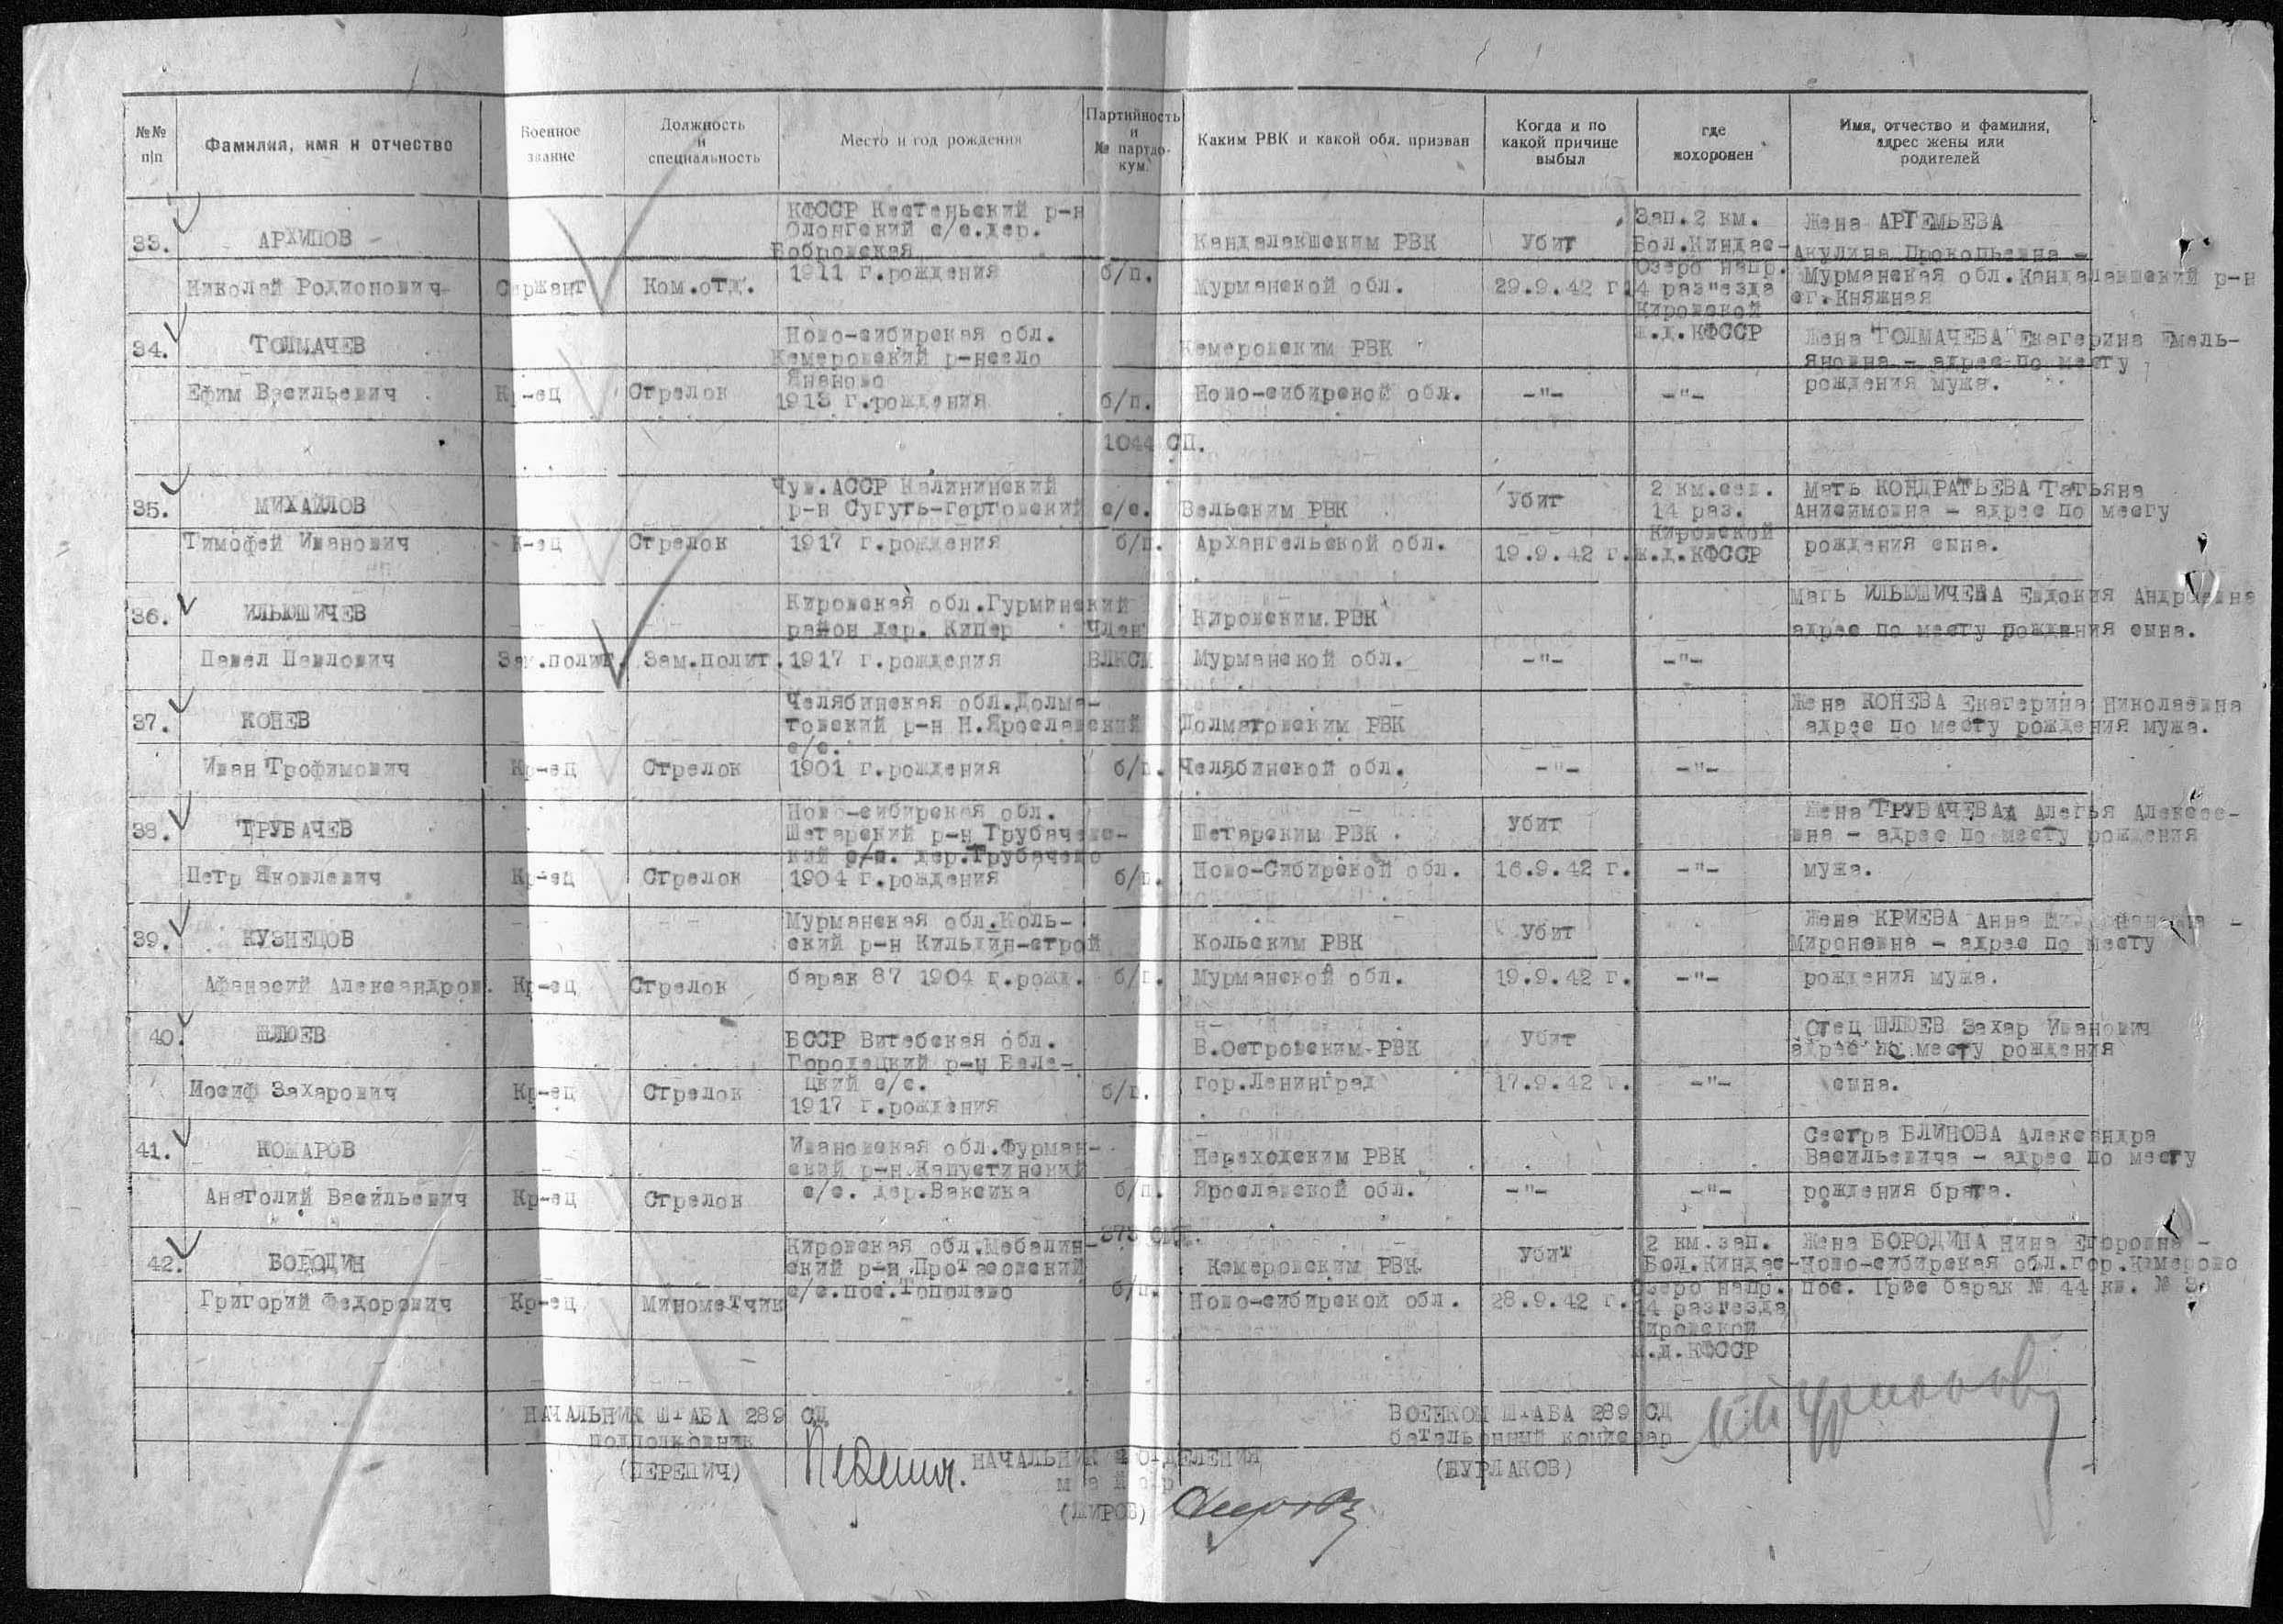 №№ п/п
Фамилия, имя и отчество
Военное звание
Должность и специальность
Место и год рождения
Партийность и № партдокум.
Каким РВК и какой обл. призван
Когда и по какой причине выбыл
где похоронен
Имя, отчество и фамилия, адрес жены или родителей
33. АРХИПОВ
Николай Родионович
Сержант
Ком.отд.
КФССР Кестеньский р-н
Олонгский с/с.дер.
Бобровская
1911 г.рождения
б/п.
Кандалакшским РВК
Мурманской обл.
Убит
29.9.42 г.
Зап.2 км.
Бол.Киндас-
Озеро напр.
14 раз"езда
Кировской
ж.д.КФССР
Жена АРТЕМЬЕВА
Акулина Прокопьевна -
Мурманская обл.Кандалакшский р-н
ст.Княжная
34. ТОЛМАЧЕВ
Ефим Васильевич
Кр-ец
Стрелок
Ново-сибирская обл.
Кемеровский р-несло
Янаново
1913 г.рождения
б/п.
Кемеровским РВК
Ново-сибирской обл.
-"-
-"-
Жена ТОЛМАЧЕВА Екатерина Емель-
яновна - адрес по месту
рождения мужа.
1044 СП.
35. МИХАЙЛОВ
Тимофей Иванович
К-ец
Стрелок
Чув.АССР Калининский
р-н Сугуть-тортовский с/с.
1917 г.рождения
б/п.
Вельским РВК
Архангельской обл.
Убит
19.9.42 г.
2 км.сев.
14 раз.
Кировской
ж.д.КФССР
Мать КОНДРАТЬЕВА Татьяна
Анисимовна - адрес по месту
рождения сына.
36. ИЛЬЮШИЧЕВ
Павел Павлович
Зам.полит.
Зам.полит.
Кировская обл.Гурминский
район дер. Кипер
1917 г.рождения
Член
ВЛКСМ
Кировским.РВК
Мурманской обл.
-"-
-"-
Мать ИЛЬЮШИЧЕВА Евдокия Андреевна
адрес по месту рождения сына.
37. КОНЕВ
Иван Трофимович
Кр-ец
Стрелок
Челябинская обл.Долма-
товский р-н Н.Ярославский
с/с.
1901 г.рождения
б/п.
Долматовским РВК
Челябинской обл.
-"-
-"-
Жена КОНЕВА Екатерина Николаевна
адрес по месту рождения мужа.
38. ТРУБАЧЕВ
Петр Яковлевич
Кр-ец
Стрелок
Ново-сибирская обл.
Шегарский р-н Трубачевс-
кий с/с. дер.Трубачево
1904 г.рождения
б/п.
Шегарским РВК
Ново-Сибирской обл.
Убит
16.9.42 г.
-"-
Жена ТРУБАЧЕВА Алексее-
вна - адрес по месту рождения
мужа.
39. КУЗНЕЦОВ
Афанасий Александров.
Кр-ец
Стрелок
Мурманская обл.Коль-
ский р-н Кильдин-строй
барак 87 1904 г.рожд.
б/п.
Кольским РВК
Мурманской обл.
Убит
19.9.42 г.
-"-
Жена КРИЕВА Анна
Мироновна - адрес по месту
рождения мужа.
40. ШЛЮЕВ
Иосиф Захарович
Кр-ец
Стрелок
БССР Витебская обл.
Городецкий р-н Веле-
цкий с/с.
1917 г.рождения
б/п.
В.Островским-РВК
гор.Ленинград
Убит
17.9.42 г.
-"-
Отец ШЛЮЕВ Захар Иванович
адрес по месту рождения
сына.
41. КОМАРОВ
Анатолий Васильевич
Кр-ец
Стрелок
Ивановская обл.Фурман-
ский р-н.Капустинский
с/с. дер.Ваксика
б/п.
Нереходским РВК
Ярославской обл.
-"-
-"-
Сестра БЛИНОВА Александра
Васильевича - адрес по месту
рождения брата.
42. БОРОДИН
Григорий Федорович
Кр-ец
Минометчик
Кировская обл.Шебалин-
ский р-н.Протасовский
с/с.пос.Тополево
б/п.
Кемеровским РВК
Ново-сибирской обл.
Убит
28.9.42 г.
2 км.зап.
Бол.Киндас-
озеро напр.
14 разгезда
Кировской
ж.д.КФССР
Жена БОРОДИНА Нина Егоровна -
Ново-сибирская обл.гор.Кемерово
пос. Грэс барак № 44 кв. №
НАЧАЛЬНИК ШТАБА 289 СД
подполковник
(ПЕРЕПИЧ)
НАЧАЛЬНИК ОТДЕЛЕНИЯ
майор
(ЖИРОВ)
ВОЕНКОМ ШТАБА 289 СД
батальонный комиссар
(БУРЛАКОВ)